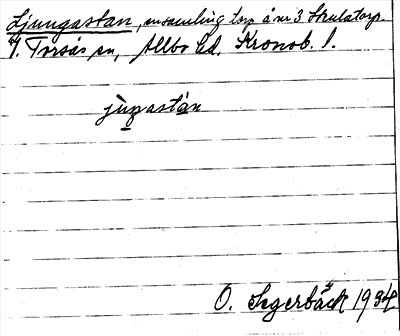 Ljungastan, en samling torp å nr 3 Strulatorp.
V. Torsås sn, Allbo hd. Kronob. l.
jùŋastàn
O. Segerbäck 1934